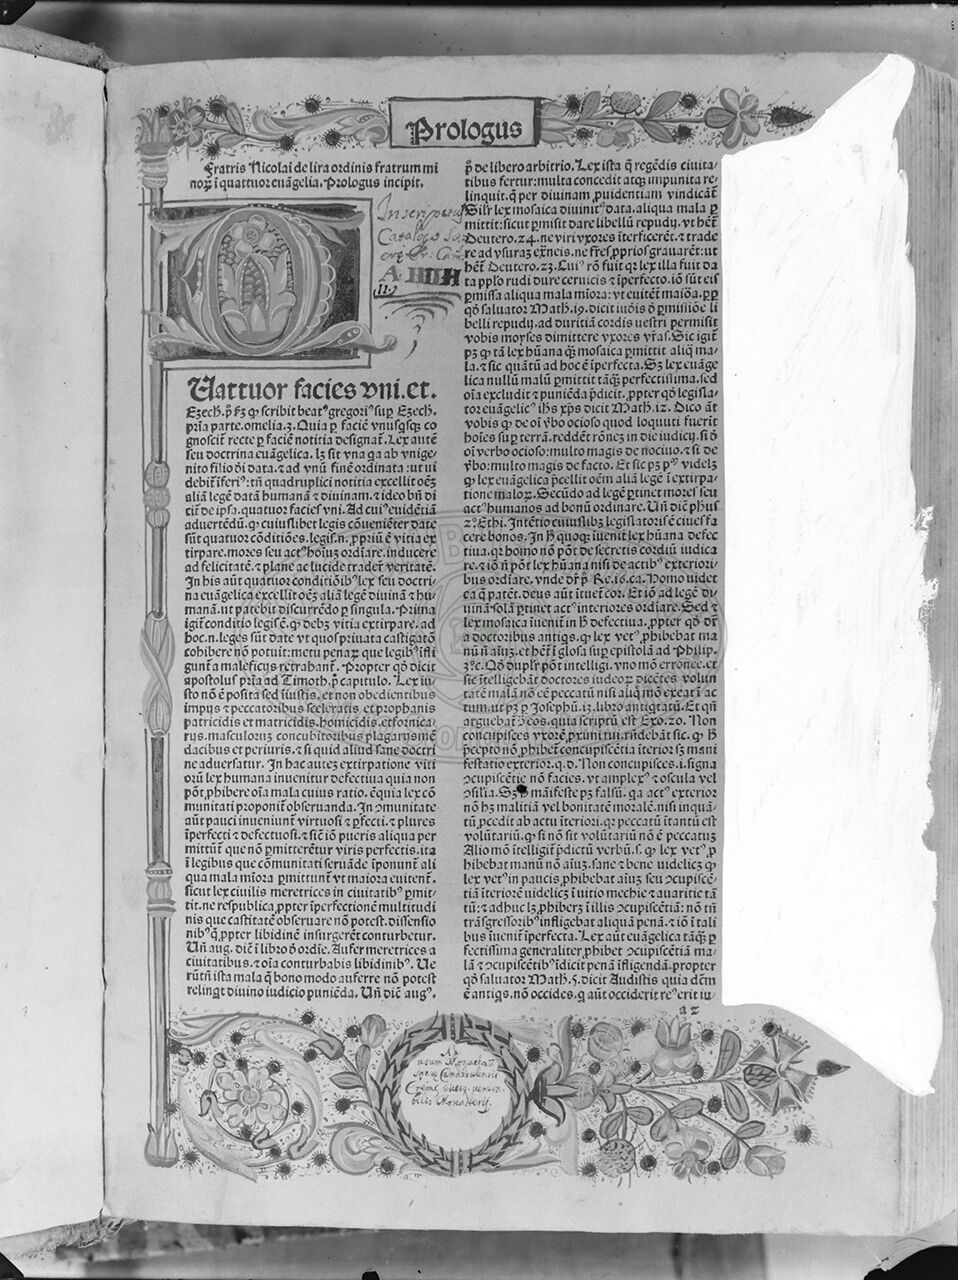 Prologus
Fratris Nicolai de lira ordinis fratrum mi
noꝝ i quattuor euāgelia. Prologus incipit.
Vattuor facies vni. et.
Ezech. p̄. ſꝫ ꝙ ſcribit beatꝰ gregoriꝰ ſuꝑ Ezech.
pria parte. omelia. 3. Quia ꝑ faciē vnuſꝗſꝗ co
gnoſcit̄ recte ꝑ faciē notitia deſignat̄. Lex autē
ſeu doctrina euāgelica. lꝫ ſit vna ꝗa ab vnige-
nito filio dī data. ⁊ ad vnū finē ordinata: ut ui
aliā legē datā humanā ⁊ diuinam. ⁊ ideo bn̄ di
cit̄ de ipſa. quatuor facies vni. Ad cuiꝰ euidētiā
aduertēdū. ꝙ cuiuſlibet legis cōueniēter date
ſūt quatuor cōditiōes. legis. n. ꝓpriū ē vitia ex
tirpare. mores ſeu actꝰ hoīuꝫ ordīare. inducere
ad felicitatē. ⁊ plane ac lucide tradeꝛ veritatē.
In his aūt quatuor conditiōibꝰ lex ſeu doctri-
na euāgelica excellit oēꝫ aliā legē diuinā ⁊ hu-
manā. ut patebit diſcurrēdo ꝑ ſingula. Prima
igit̄ conditio legiſ ē. ꝙ debꝫ vitia extirpare. ad
hoc. n. leges ſūt date vt quoſ priuata caſtigatō
cohibere nō potuit: metu penaꝝ que legibꝰ ifli
gunt̄ a maleficijs retrahant̄. Propter qō dicit
apoſtolus pria ad Timoth. p̄ capitulo. Lex iu-
ſto nō ē poſita ſed iiuſtis. et non obedientibus
impijs ⁊ peccatoribus ſceleratis et prophanis
patricidis et matricidis. homicidis. et fornica-
rijs. maſculoruꝫ concubitoribus plagarijs mē
dacibus et periuris. ⁊ ſi quid aliud ſane doctri
ne aduerſatur. In hac auteꝫ extirpatione viti
orū lex humana inuenitur defectiua quia non
pōt ꝓhibere oīa mala cuius ratio. ē quia lex cō
munitati proponit̄ obſeruanda. In ↄmunitate
aūt pauci inueniunt̄ virtuoſi ⁊ ꝑfecti. ⁊ plures
iperfecti ⁊ defectuoſi. ⁊ ſic̄ iō pueris aliqua per
mittūt̄ que nō ꝑmitterēt̄ur viris perfectis. ita
i legibus que cōmunitati ſeruāde iponunt̄ ali
qua mala miora ꝑmittunt̄ vt maiora euitent̄.
ſicut lex ciuilis meretrices in ciuitatibꝰ ꝑmit-
tit. ne reſpublica ꝓpter iperfectionē multitudi
nis que caſtitatē obſeruare nō poteſt. diſſenſio
nibꝰ ꝗ ꝓpter libidinē inſurgerēt conturbetur.
Un̄ aug. dicit̄ i libro ō ordīe. Aufer meretrices a
ciuitatibus. ⁊ oīa conturbabis libidinibꝰ. Ue
rūtn̄ iſta mala ꝗ bono modo auferre nō poteſt
relinqt̄ diuino iudicio puniēda. Un̄ dic̄ augꝰ.
p̄ de libero arbitrio. Lex iſta ꝗ̄ regēdis ciuita-
tibus fertur: multa concedit atqꝫ impunita re-
linquit. ꝗ̄ per diuinam ꝓuidentiam vindicāt̄
Silr̄ lex moſaica diuinitꝰ data. aliqua mala ꝑ
mittit: ſicut ꝑmiſit dare libellū repudij. vt het̄
Deutero. 24. ne viri vxores iterficerēt. ⁊ trade
re ad vſuraꝫ extraneis. ne fres ꝓprioſ grauarent̄: ut
het̄ Deutero. 23. Cuiꝰ rō fuit qꝛ lex illa fuit da
ta pplo rudi dure ceruicis ⁊ iperfecto. iō ſūt eis
ꝑmiſſa aliqua mala miora: vt euitet̄ maiora. ꝓp
qō ſaluator Math. 19. dicit iudeis ō ꝑmiſſiōe li
belli repudij. ad duritiā cordis ueſtri permiſit
vobis moyſes dimittere vxores vr̄as. Sic igit̄
pꝫ ꝙ tā lex hūana qꝫ moſaica ꝑmittit aliqͣ ma-
la. ⁊ ſic quātū ad hoc ē iperfecta. Sꝫ lex euāge
lica nullū malū ꝑmittit tāqꝫ perfectiſſima. ſed
oīa excludit ⁊ puniēda p̄dicit. ꝓpter qō legiſla-
tor euāgelicꝰ ihs xp̄s dicit Math. 12. Dico āt
vobis ꝙ de oī v̄bo ocioſo quod loquuti fuerit̄
hoīes ſuꝑ terrā. reddēt rōneꝫ in die iudicij. ſi ō
oī verbo ocioſo: multo magis de nociuo. ⁊ ſi de
v̄bo: multo magis de facto. Et ſic pꝫ pᵐ videlꝫ
ꝙ lex euāgelica p̄cellit oēm aliā legē i extirpa-
tione maloꝝ. Secūdo ad legē ꝑtinet mores ſeu
actꝰ humanos ad bonū ordinare. Un̄ dic̄ ph̄us
2º Ethi. Intētio cuiuſlibꝫ legiſlatoriſ ē ciueſ fa
cere bonos. In hͦ quoqꝫ iuenit̄ lex hūana defec
tiua. qꝛ homo nō pōt de ſecretis cordiū iudica
re. ⁊ iō n̄ pōt lex hūana niſi de actibꝰ exteriori-
bus ordīare. vnde dr̄ p̄ Re. 16. ca. Homo uidet
ea ꝗ patēt. deus aūt ituet̄ cor. Et iō ad legē di-
uinā ſolā ꝑtinet actꝰ interiores ordīare. Sed ⁊
lex moſaica iuenit̄ in hͦ defectiua. ꝓpter qō dr̄
a doctoribus antiqs. ꝙ lex vetꝰ ꝓhibebat ma
nū n̄ aīuꝫ. et het̄ i gloſa ſuꝑ epiſtolā ad Philip.
3º c. Qō dupl̄r pōt intelligi. vno mō erronee. et
ſic itelligebāt doctores iudeoꝝ dicētes volun
tatē malā nō eē peccatū niſi aliqͦ mō exeat i ac
tum. ut pꝫ ꝑ Joſephū. 12. libro antiqtatū. Et qn̄
arguebat̄ ↄ̄ eos. quia ſcriptū eſt Exo. 20. Non
concupiſces vxorē ꝓximi tui. rn̄debāt ſic. ꝙ hͦ
p̄cepto nō ꝓhibet̄ concupiſcētia iterior ſꝫ mani
feſtatio exterior. q. d. Non concupiſces. i. ſigna
ↄcupiſcētie nō facies. vt amplexꝰ ⁊ oſcula vel
ↄſilia. Sꝫ hͦ māifeſte pꝫ falſū. ꝗa actꝰ exterior
nō hꝫ malitiā vel bonitatē moralē. niſi inquā-
tū ꝓcedit ab actu iteriori. qꝛ peccatū itantū eſt
volūtariū. ꝙ ſi nō ſit volūtariū nō ē peccatuꝫ
Alio mō itelligit̄ p̄dictū verbū. ſ. ꝙ lex vetꝰ ꝓ
hibebat manū nō aīuꝫ. ſane ⁊ bene uidelicꝫ ꝙ
lex vetꝰ in paucis ꝓhibebat aīuꝫ ſeu ↄcupiſcē-
tiā iteriorē uidelicꝫ i uitio mechie ⁊ auaritie tā
tū: ⁊ adhuc lꝫ ꝓhiberꝫ i illis ↄcupiſcētiā: nō tn̄
trāſgreſſoribꝰ infligebat aliquā penā. ⁊ iō i tali
bus iuenit̄ iperfecta. Lex aūt euāgelica tāqꝫ ꝑ
fectiſſima generaliter ꝓhibet ↄcupiſcētiā ma-
lā ⁊ ↄcupiſcētibꝰ idicit penā ifligendā. propter
qō ſaluator Math. 5. dicit Audiſtis quia dcm̄
ē antiqs. nō occides. ꝗ aūt occiderit reꝰ erit iu
a 2
Inscriptus
Catalogo
A
11.
Ad
usum Monachorū
sacræ Camaldulensis
Eremi eiusq. venera
bilis Monasterij.